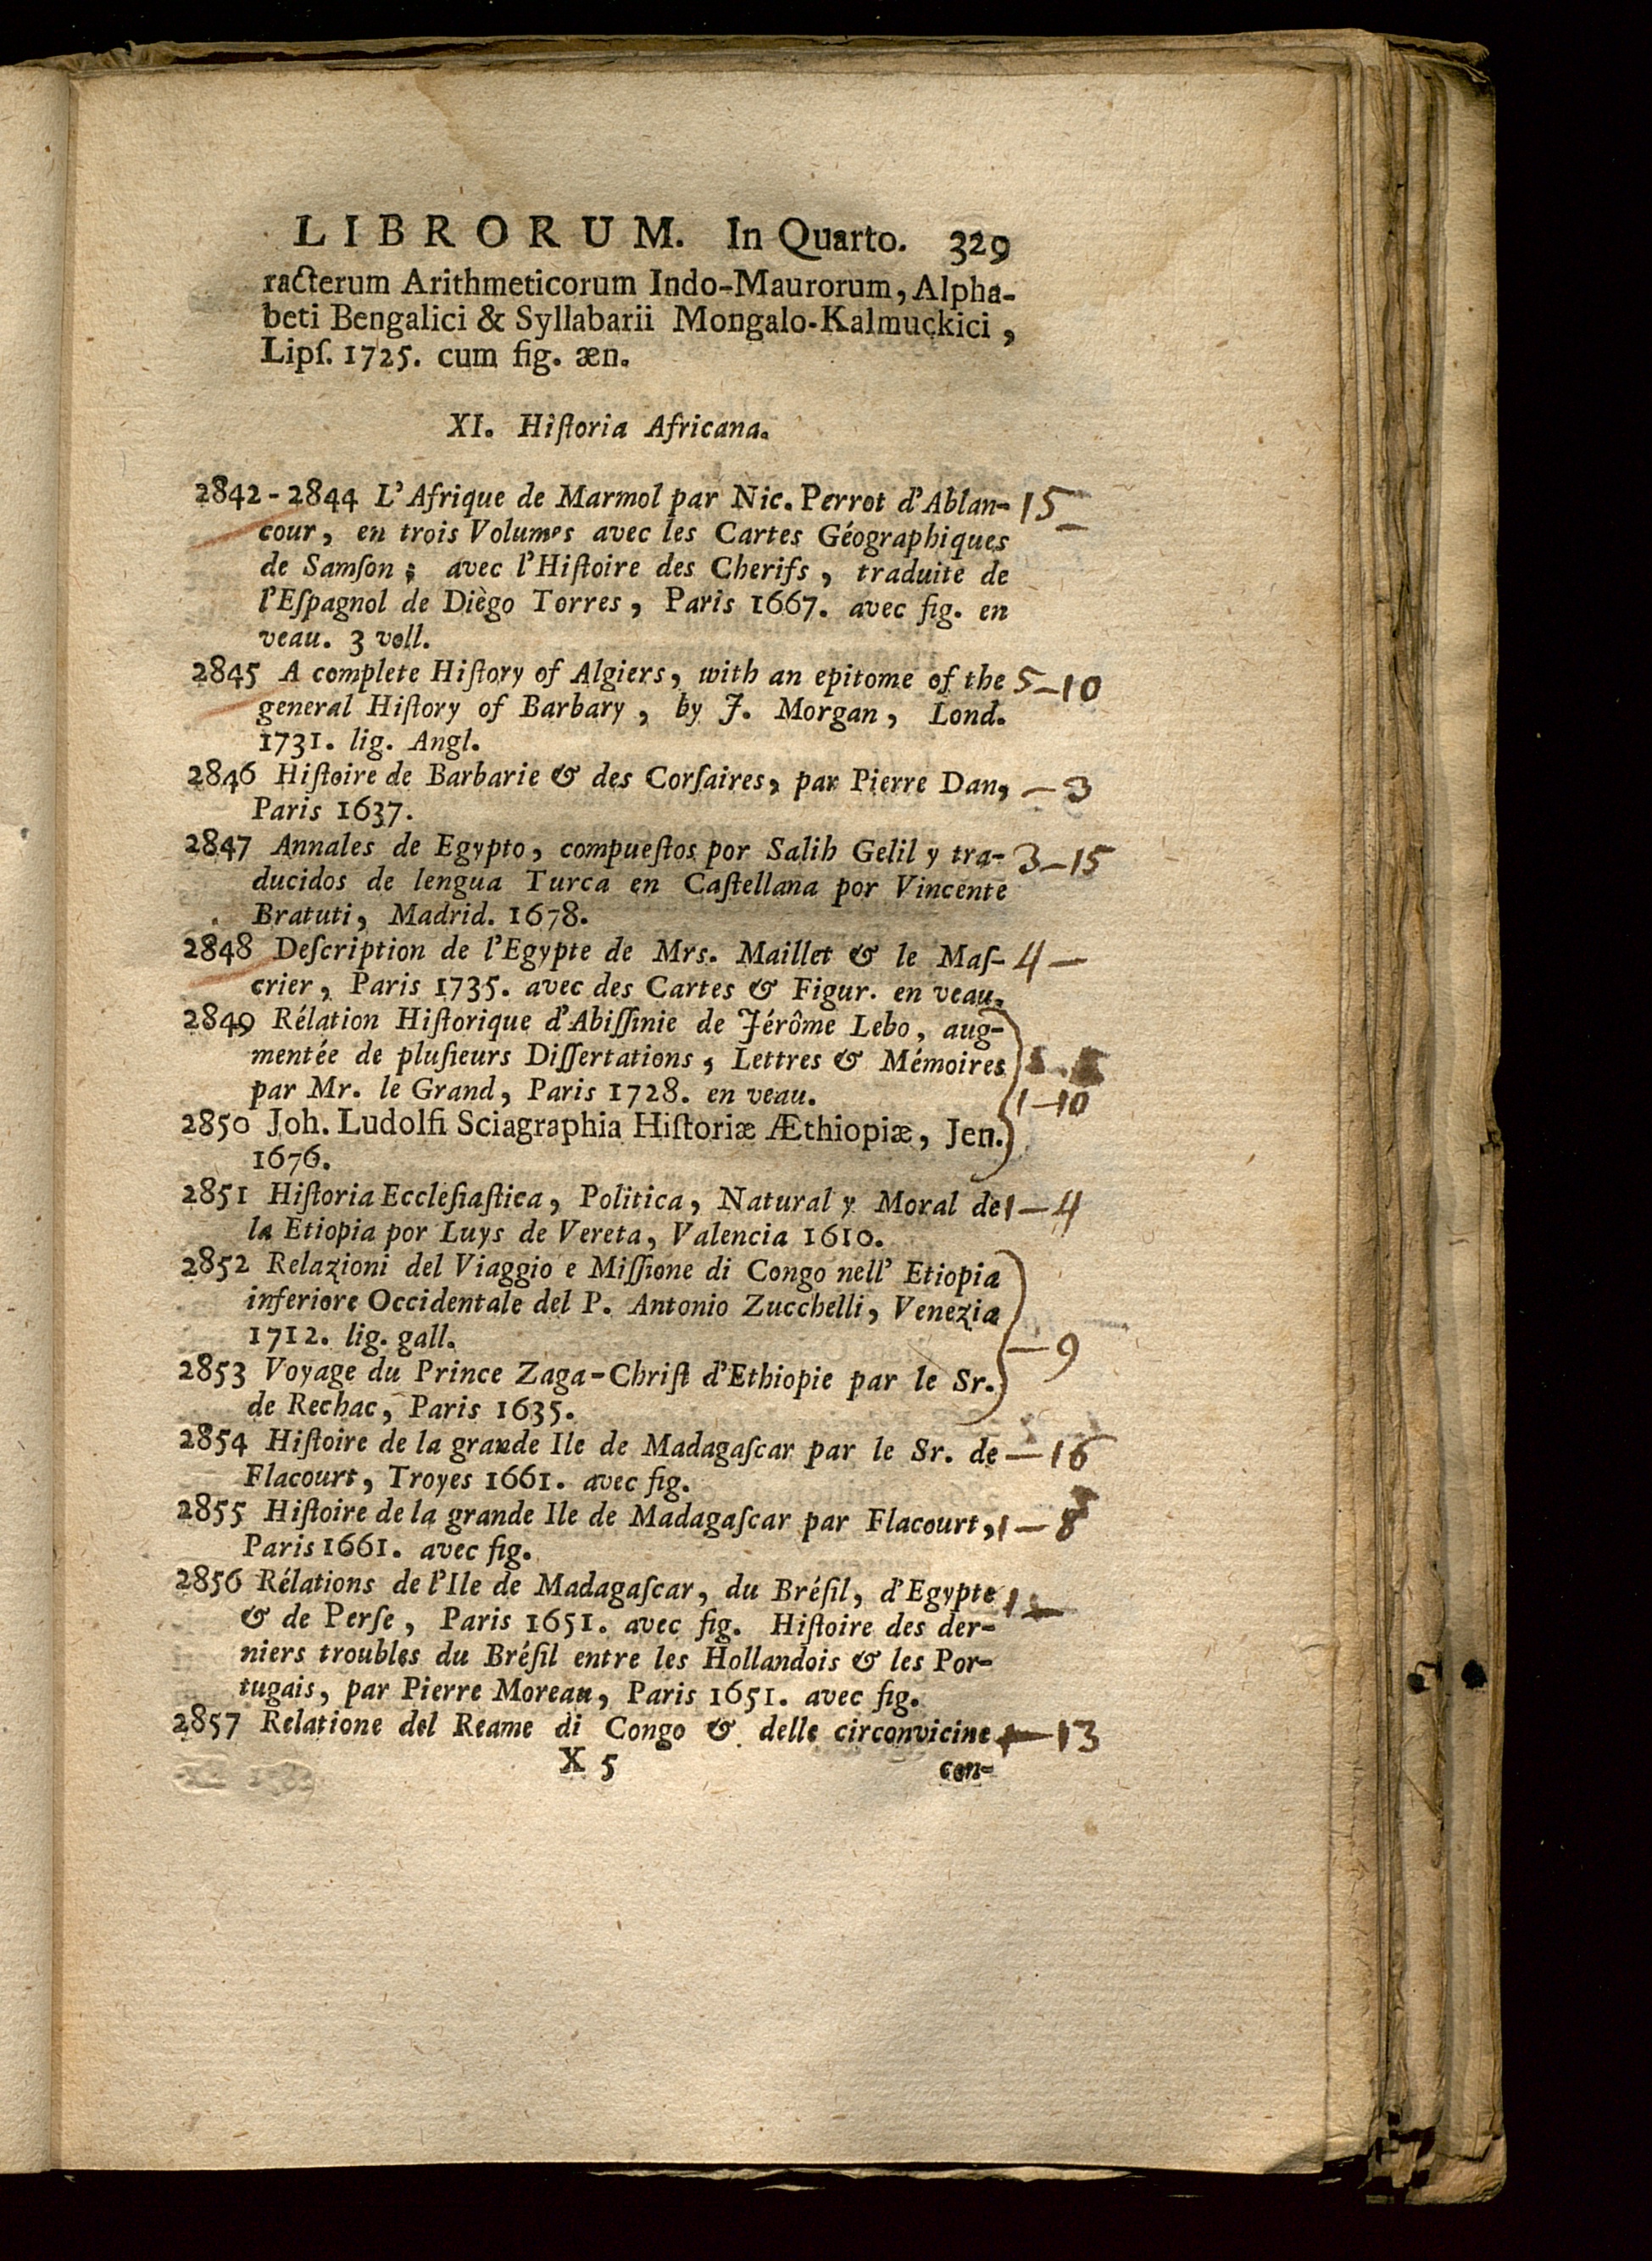 LIBRORUM. In Quarto. 329
racterum Arithmeticorum Indo-Maurorum, Alpha-
beti Bengalici & Syllabarii Mongalo-Kalmuckici,
Lipſ. 1725. cum fig. æn.
XI. Hiſtoria Africana.
2842-2844 L'Afrique de Marmol par Nic. Perrot d'Ablan- 15 –
cour, en trois Volumes avec les Cartes Géographiques
de Samſon; avec l'Hiſtoire des Cherifs, traduite de
l'Eſpagnol de Diègo Torres, Paris 1667. avec fig. en
veau. 3 voll.
2845 A complete Hiſtory of Algiers, with an epitome of the 5–10
general Hiſtory of Barbary, by J. Morgan, Lond.
1731. lig. Angl.
2846 Hiſtoire de Barbarie & des Corſaires, par Pierre Dan, –3
Paris 1637.
2847 Annales de Egypto, compueſtos por Salih Gelil y tra- 3–15
ducidos de lengua Turca en Caſtellana por Vincente
Bratuti, Madrid. 1678.
2848 Deſcription de l'Egypte de Mrs. Maillet & le Maſ- 4 –
crier, Paris 1735. avec des Cartes & Figur. en veau.
2849 Rélation Hiſtorique d'Abiſſinie de Jérôme Lebo, aug-
mentée de pluſieurs Diſſertations, Lettres & Mémoires
par Mr. le Grand, Paris 1728. en veau. 1–10
2850 Joh. Ludolfi Sciagraphia Hiſtoriæ Æthiopiæ, Jen.
1676.
2851 Hiſtoria Eccleſiaſtica, Politica, Natural y Moral de 1–4
la Etiopia por Luys de Vereta, Valencia 1610.
2852 Relazioni del Viaggio e Miſſione di Congo nell' Etiopia
inferiore Occidentale del P. Antonio Zucchelli, Venezia
1712. lig. gall. –9
2853 Voyage du Prince Zaga-Chriſt d'Ethiopie par le Sr.
de Rechac, Paris 1635.
2854 Hiſtoire de la grande Ile de Madagaſcar par le Sr. de –16
Flacourt, Troyes 1661. avec fig.
2855 Hiſtoire de la grande Ile de Madagaſcar par Flacourt, 1–8
Paris 1661. avec fig.
2856 Rélations de l'Ile de Madagaſcar, du Bréſil, d'Egypte 1 –
& de Perſe, Paris 1651. avec fig. Hiſtoire des der-
niers troubles du Bréſil entre les Hollandois & les Por-
tugais, par Pierre Moreau, Paris 1651. avec fig.
2857 Relatione del Reame di Congo & delle circonvicine –13
X 5 con-